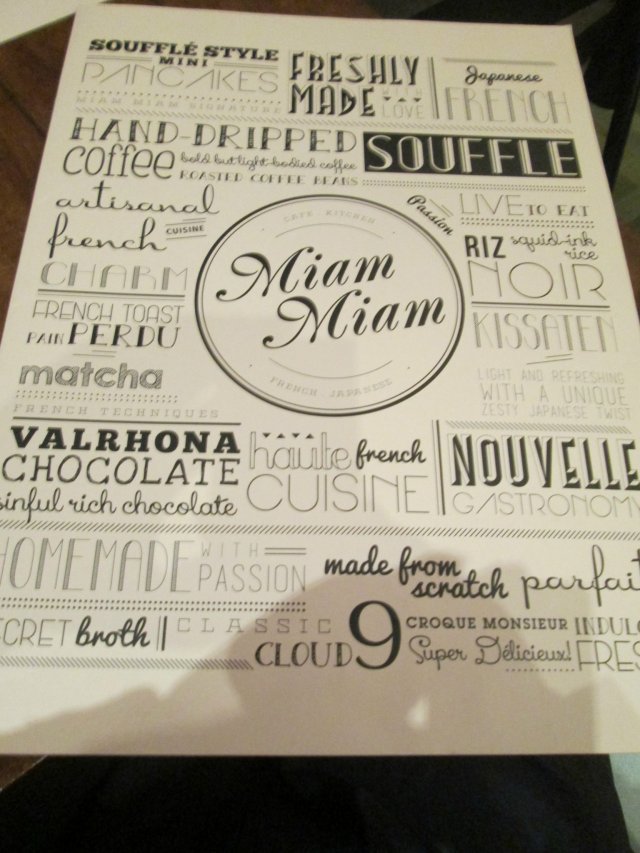 SOUFFLÉ STYLE
MINI
PANCAKES
MIAM MIAM SIGNATURE
FRESHLY
MADE WITH LOVE
Japanese
FRENCH
HAND-DRIPPED
coffee bold but light-bodied coffee
ROASTED COFFEE BEANS
SOUFFLE
artisanal
french CUISINE
CHARM
FRENCH TOAST
PAIN PERDU
matcha
FRENCH TECHNIQUES
CAFE . KITCHEN
Miam
Miam
FRENCH . JAPANESE
Passion
LIVE TO EAT
RIZ squid-ink rice
NOIR
KISSATEN
LIGHT AND REFRESHING
WITH A UNIQUE
ZESTY JAPANESE TWIST
VALRHONA
CHOCOLATE
sinful rich chocolate
haute french
CUISINE
NOUVELLE
GASTRONOMY
HOMEMADE WITH PASSION
made from
scratch
parfait
ECRET broth
CLASSIC
CLOUD 9
CROQUE MONSIEUR INDULG
Super Délicieux! FRES